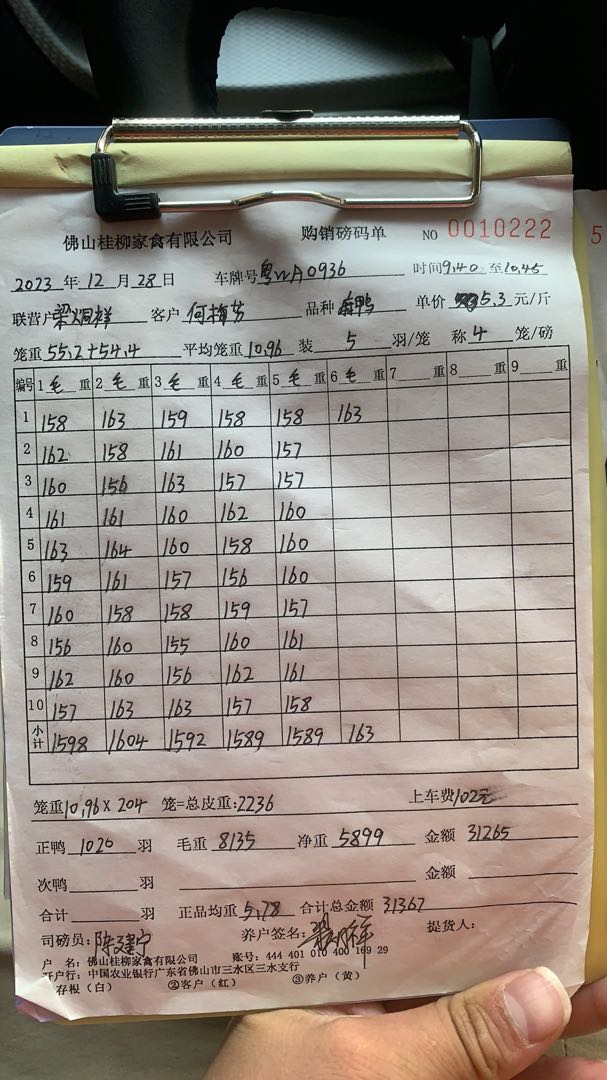 佛山桂柳家禽有限公司 购销磅码单 NO 0010222 5
2023 年 12 月 28 日 车牌号 粤WA0936 时间 9.40 至 10.45
联营户 梁炯祥 客户 何梅芳 品种 鸭 单价 5.3 元/斤
笼重 55.2+54.4 平均笼重 10.96 装 5 羽/笼 称 4 笼/磅
编号 1 毛 重 2 毛 重 3 毛 重 4 毛 重 5 毛 重 6 毛 重 7 重 8 重 9 重
1 158 163 159 158 158 163
2 162 158 161 160 157
3 160 156 163 157 157
4 161 161 160 162 160
5 163 164 160 158 160
6 159 161 157 156 160
7 160 158 158 159 157
8 156 160 155 160 161
9 162 160 156 162 161
10 157 163 163 157 158
小计 1598 1604 1592 1589 1589 163
笼重 10.96 × 204 笼=总皮重: 2236 上车费 102元
正鸭 1020 羽 毛重 8135 净重 5899 金额 31265
次鸭 羽 金额
合计 羽 正品均重 5.78 合计总金额 31367
司磅员: 陈建宁 养户签名: 提货人:
户 名: 佛山桂柳家禽有限公司 账号: 444 401 010 400 169 29
开户行: 中国农业银行广东省佛山市三水区三水支行
存根（白） ②客户（红） ③养户（黄）